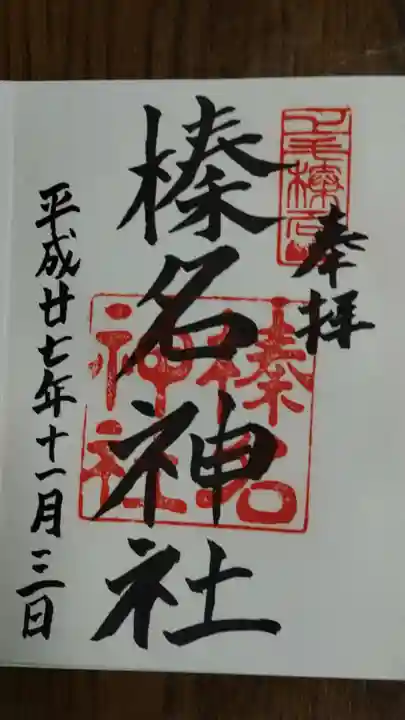 奉拝
上毛榛名山
榛名神社
榛名
神社
平成廿七年十一月三日